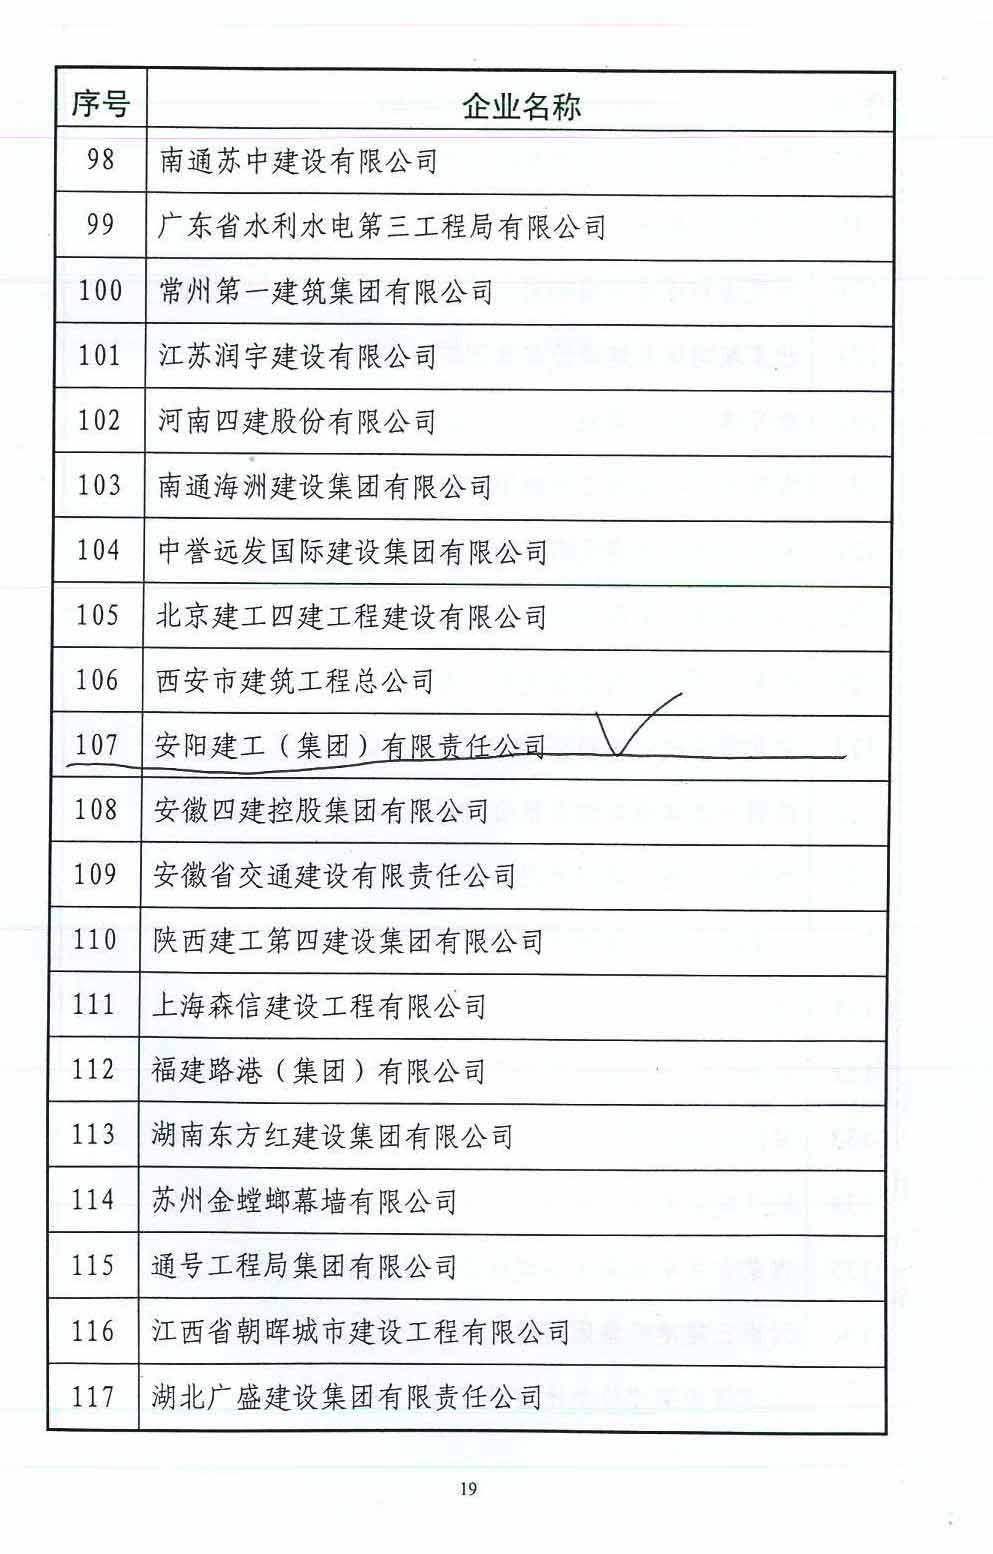 序号 企业名称
98 南通苏中建设有限公司
99 广东省水利水电第三工程局有限公司
100 常州第一建筑集团有限公司
101 江苏润宇建设有限公司
102 河南四建股份有限公司
103 南通海洲建设集团有限公司
104 中誉远发国际建设集团有限公司
105 北京建工四建工程建设有限公司
106 西安市建筑工程总公司
107 安阳建工（集团）有限责任公司
108 安徽四建控股集团有限公司
109 安徽省交通建设有限责任公司
110 陕西建工第四建设集团有限公司
111 上海森信建设工程有限公司
112 福建路港（集团）有限公司
113 湖南东方红建设集团有限公司
114 苏州金螳螂幕墙有限公司
115 通号工程局集团有限公司
116 江西省朝晖城市建设工程有限公司
117 湖北广盛建设集团有限责任公司
19